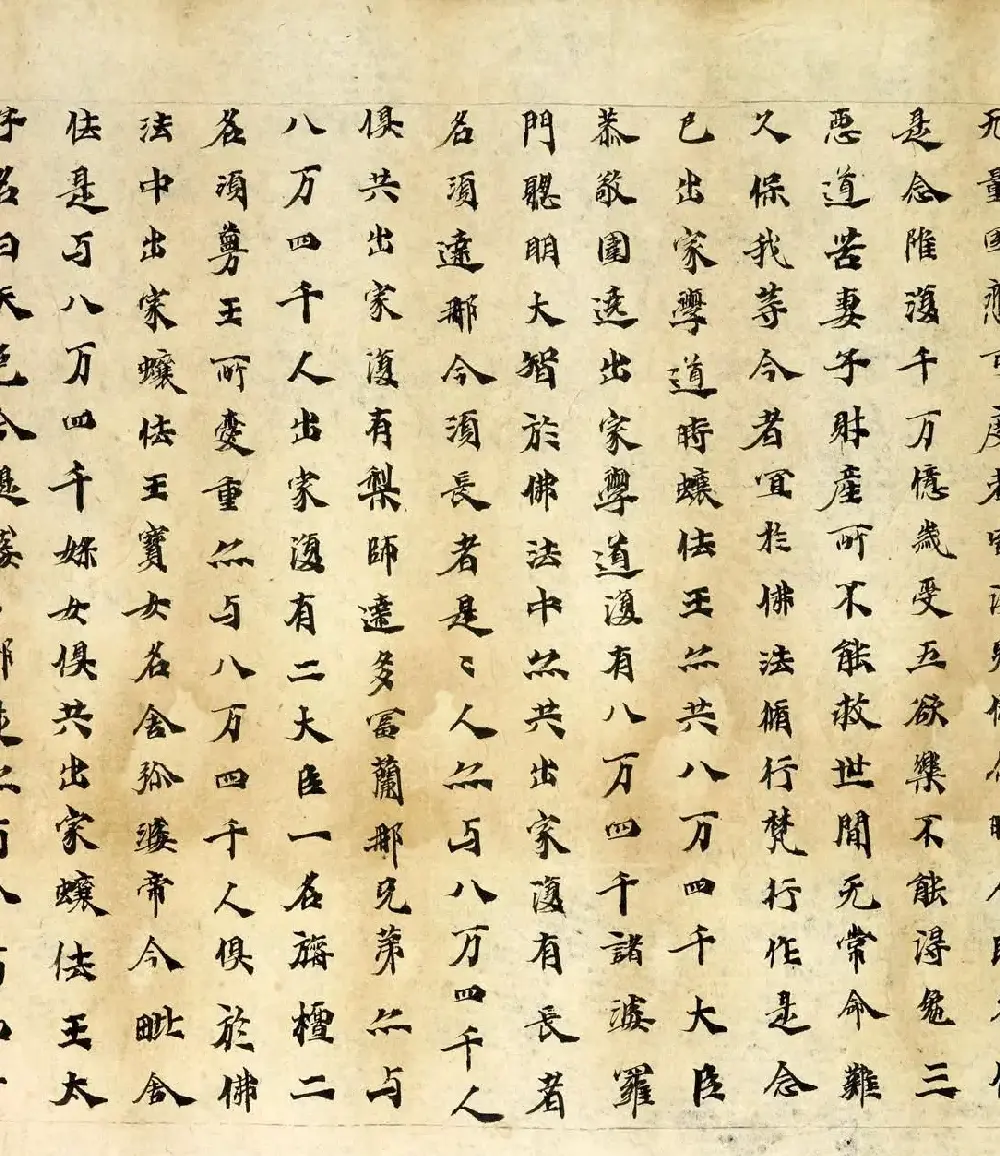 无量
是念雖復千万億歲受五欲樂不能得免三
惡道苦妻子財產所不能救世間无常命難
久保我等今者宜於佛法脩行梵行作是念
已出家學道時蠰佉王亦共八万四千大臣
恭敬圍遶出家學道復有八万四千諸婆羅
門聰明大智於佛法中亦共出家復有長者
名須達那今須長者是〻人亦与八万四千人
俱共出家復有梨師達多冨蘭那兄弟亦与
八万四千人出家復有二大臣一名旃檀二
名須曼王所愛重亦与八万四千人俱於佛
法中出家蠰佉王寶女名舍弥婆帝今毗舍
佉是与八万四千婇女俱共出家蠰佉王太
子名曰天色今是